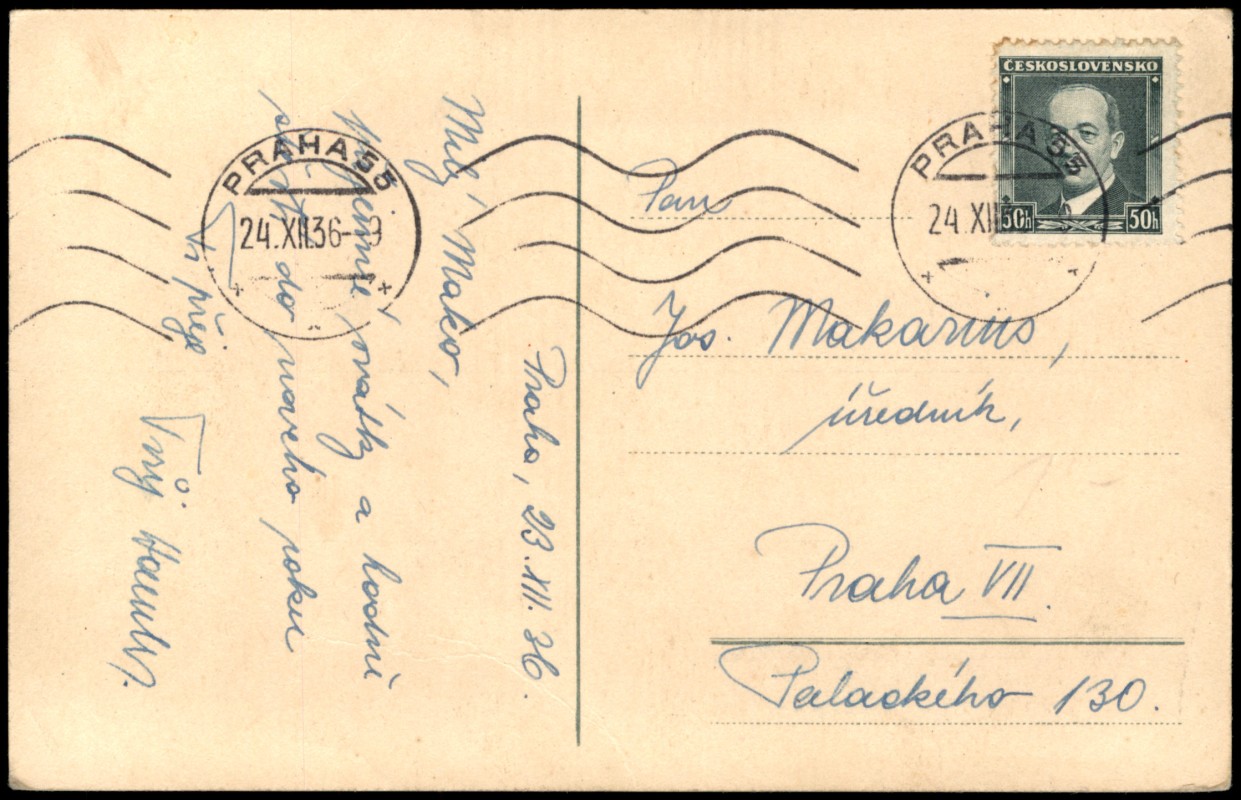 Praha, 23. XII. 36.
Milý Mako,
příjemné svátky a hodně
štěstí do nového roku
Ti přeje
Tvůj
PRAHA 55
24.XII.36-9
ČESKOSLOVENSKO
50h 50h
PRAHA 55
24.XII
Pan
Jos. Makarius,
úředník,
Praha VII.
Palackého 130.